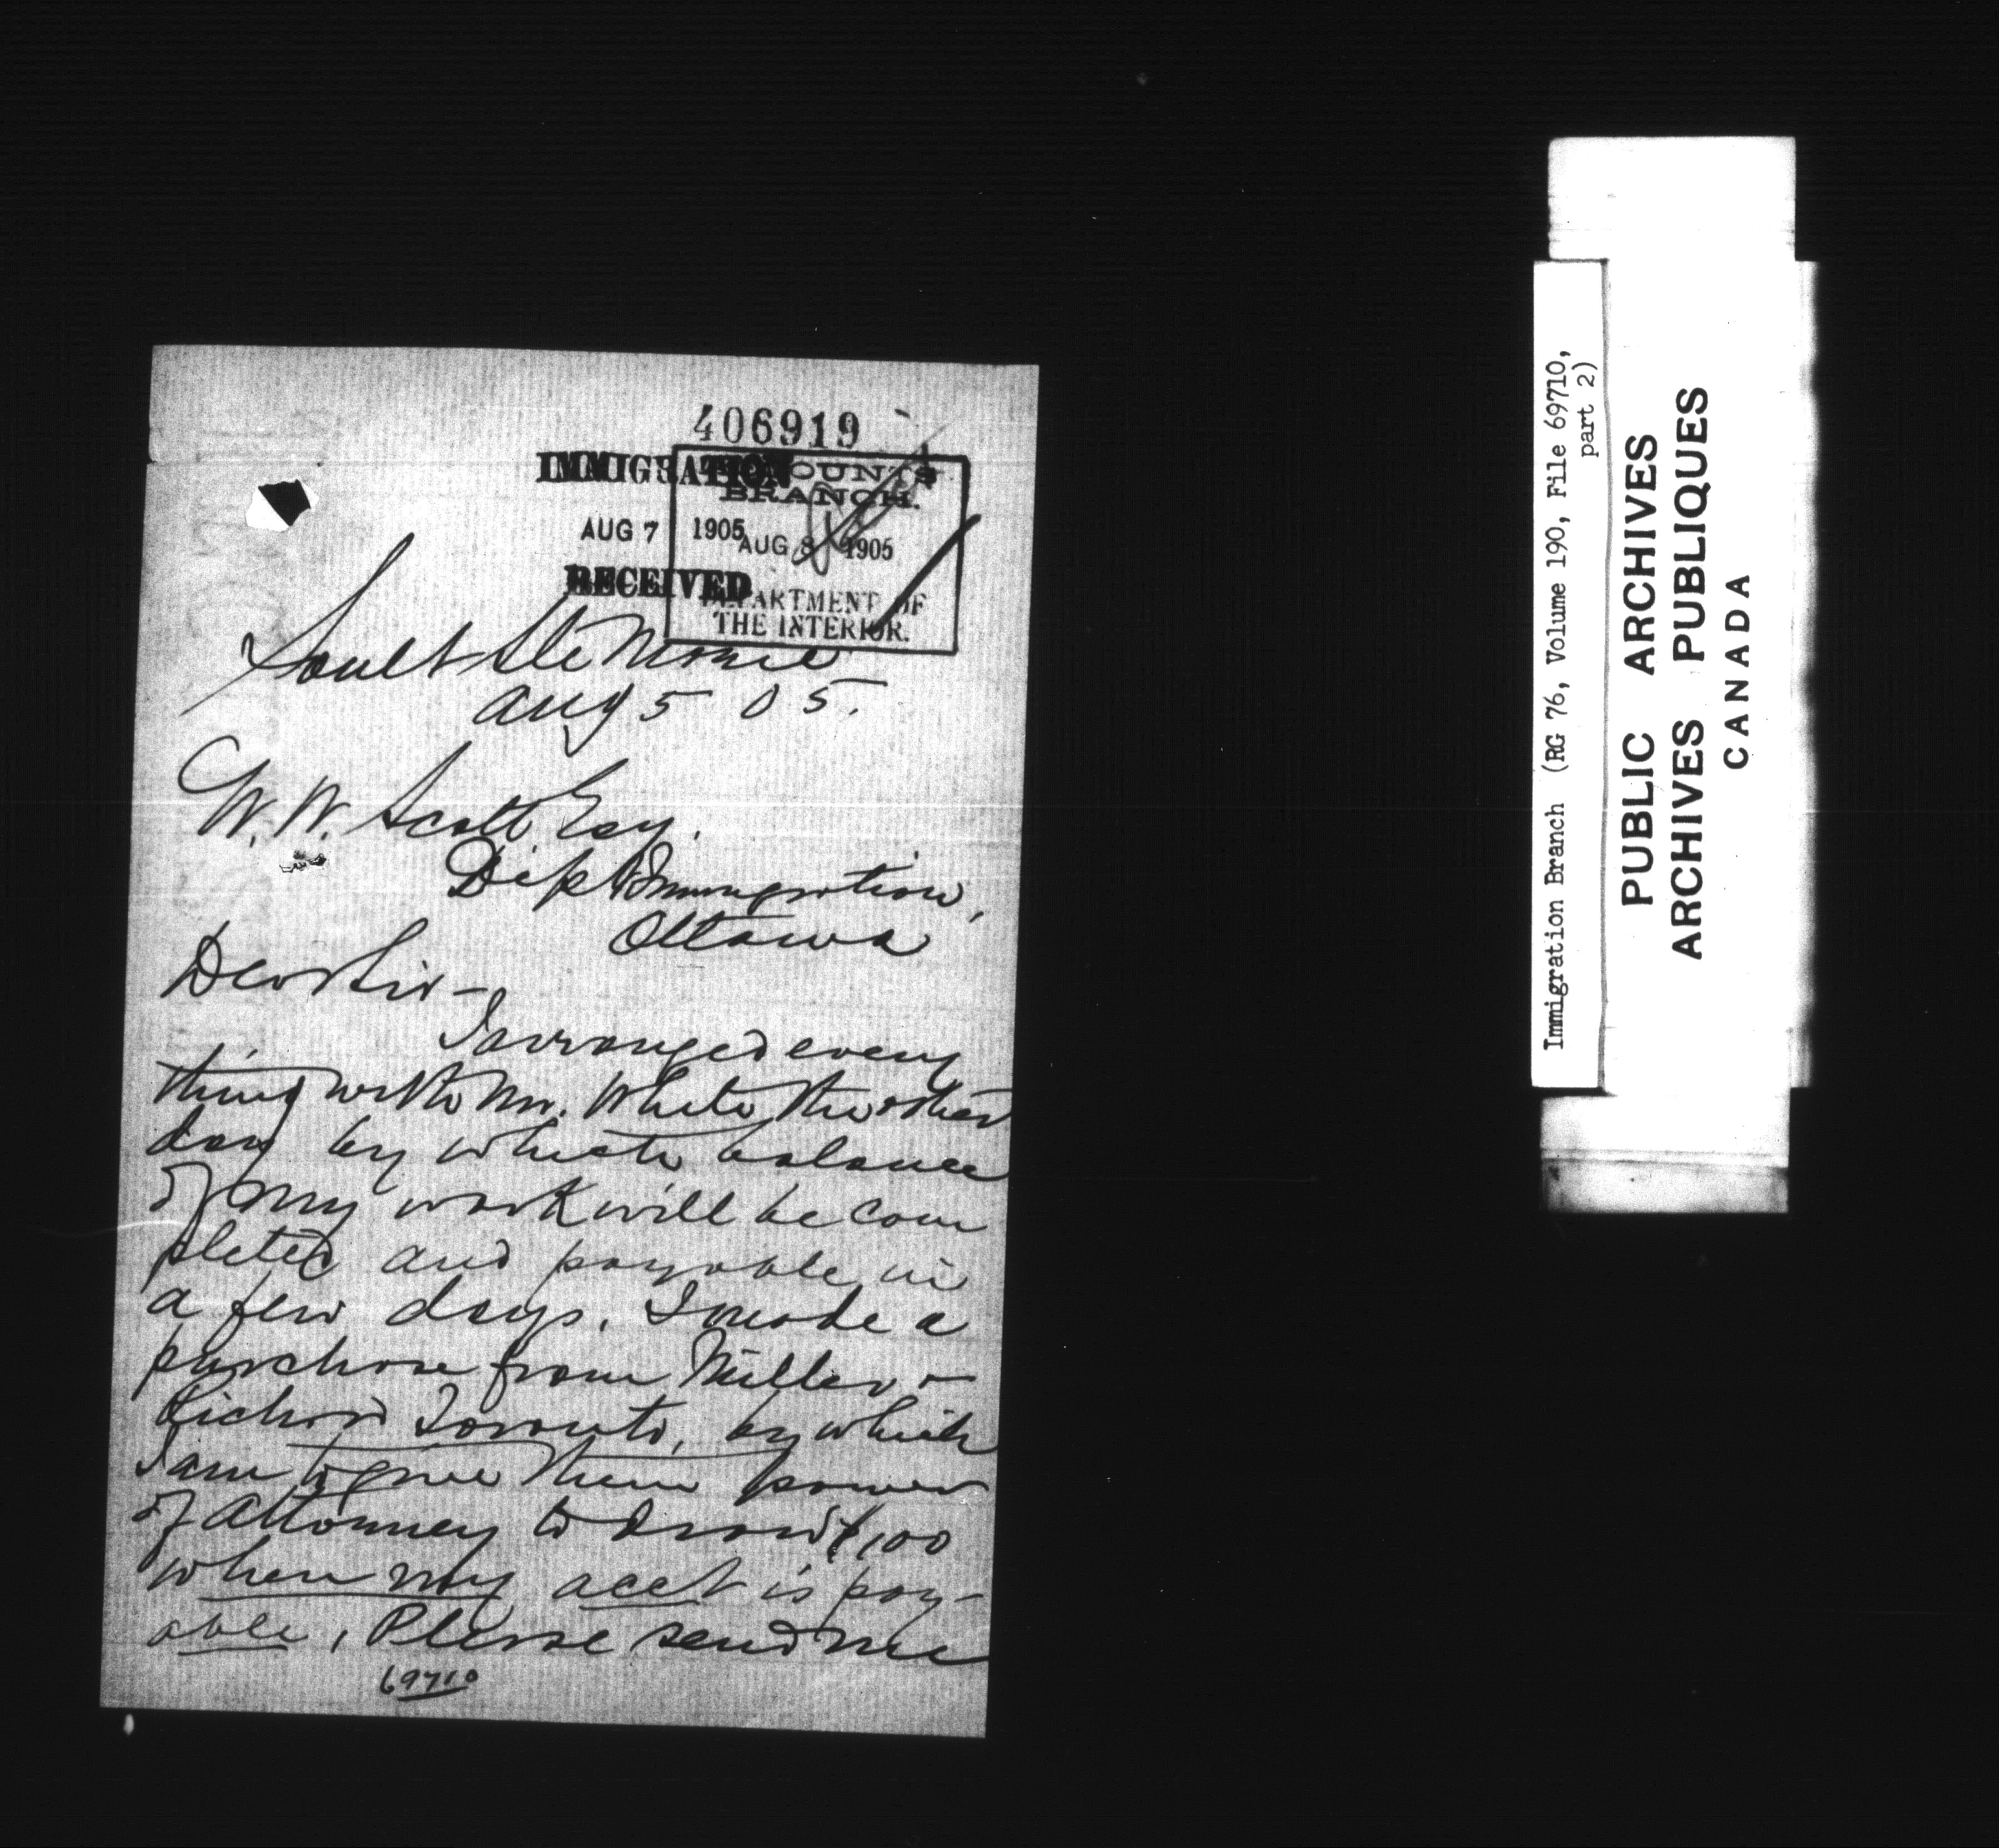 406919
IMMIGRATION
AUG 7 1905
RECEIVED
ACCOUNTS
BRANCH.
AUG 8 1905
DEPARTMENT OF
THE INTERIOR.
Sault Ste Marie
Aug 5 05.
W. W. Scott Esq.
Dept Immigration,
Ottawa
Dear Sir –
I arranged every
thing with Mr. White the other
day by which balance
of my work will be com
pleted and payable in
a few days. I made a
purchase from Miller &
Richard Toronto, by which
I am to give them power
of attorney to draw $100
when my acct is pay-
able. Please send me
69710
Immigration Branch (RG 76, Volume 190, File 69710,
part 2)
PUBLIC ARCHIVES
ARCHIVES PUBLIQUES
CANADA